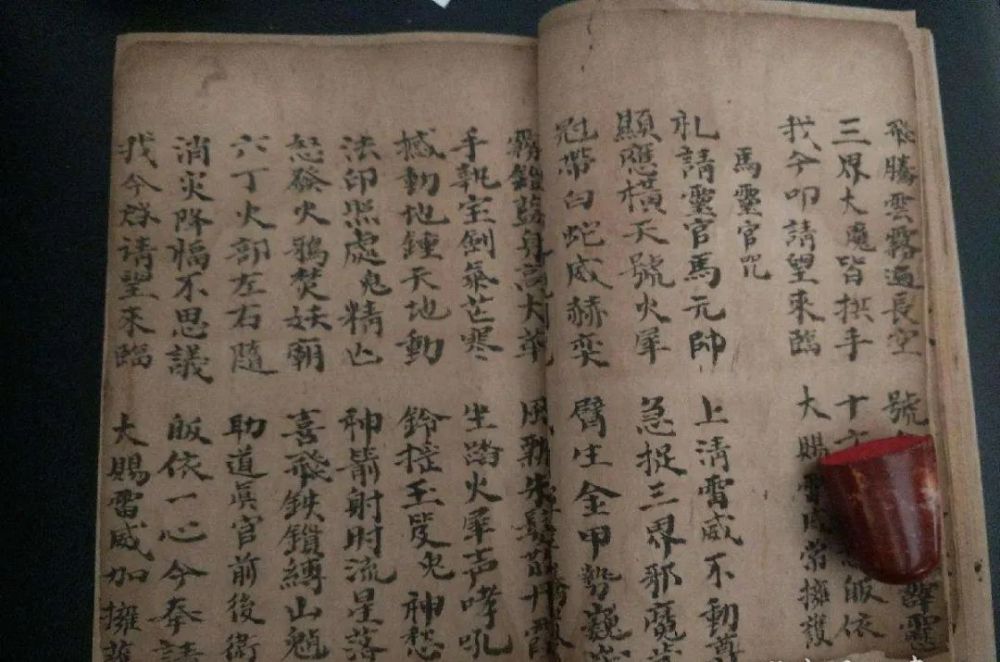 飛騰雲霧遍長空 號 靂
三界大魔皆拱手 十 皈依
我今叩請望來臨 大賜 常擁護
馬靈官咒
礼請靈官馬元帥 上清雷威不動尊
顯應橫天號火犀 急捉三界邪魔
冠帶白蛇威赫奕 臂生金甲勢巍
霧鎧 身 大 風 朱
手執宝劍氣芒寒 坐踏火犀声哮吼
撼動地鍾天地動 鈴 王 鬼神愁
法印照處鬼精亡 神箭射時流星落
怒發火鴉焚妖廟 喜飛鉄鎖縛山魈
六丁火部左右隨 助道眞官前後衛
消灾降福不思議 皈依一心今奉請
我今 請望來臨 大賜雷威加擁護